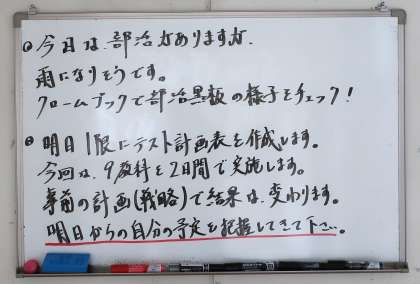 ●今日は、部活がありますが、
雨になりそうです。
クロームブックで部活黒板の様子をチェック!
●明日1限にテスト計画表を作成します。
今回は、9教科を2日間で実施します。
事前の計画(戦略)で結果は、変わります。
明日からの自分の予定を把握してきて下さい。